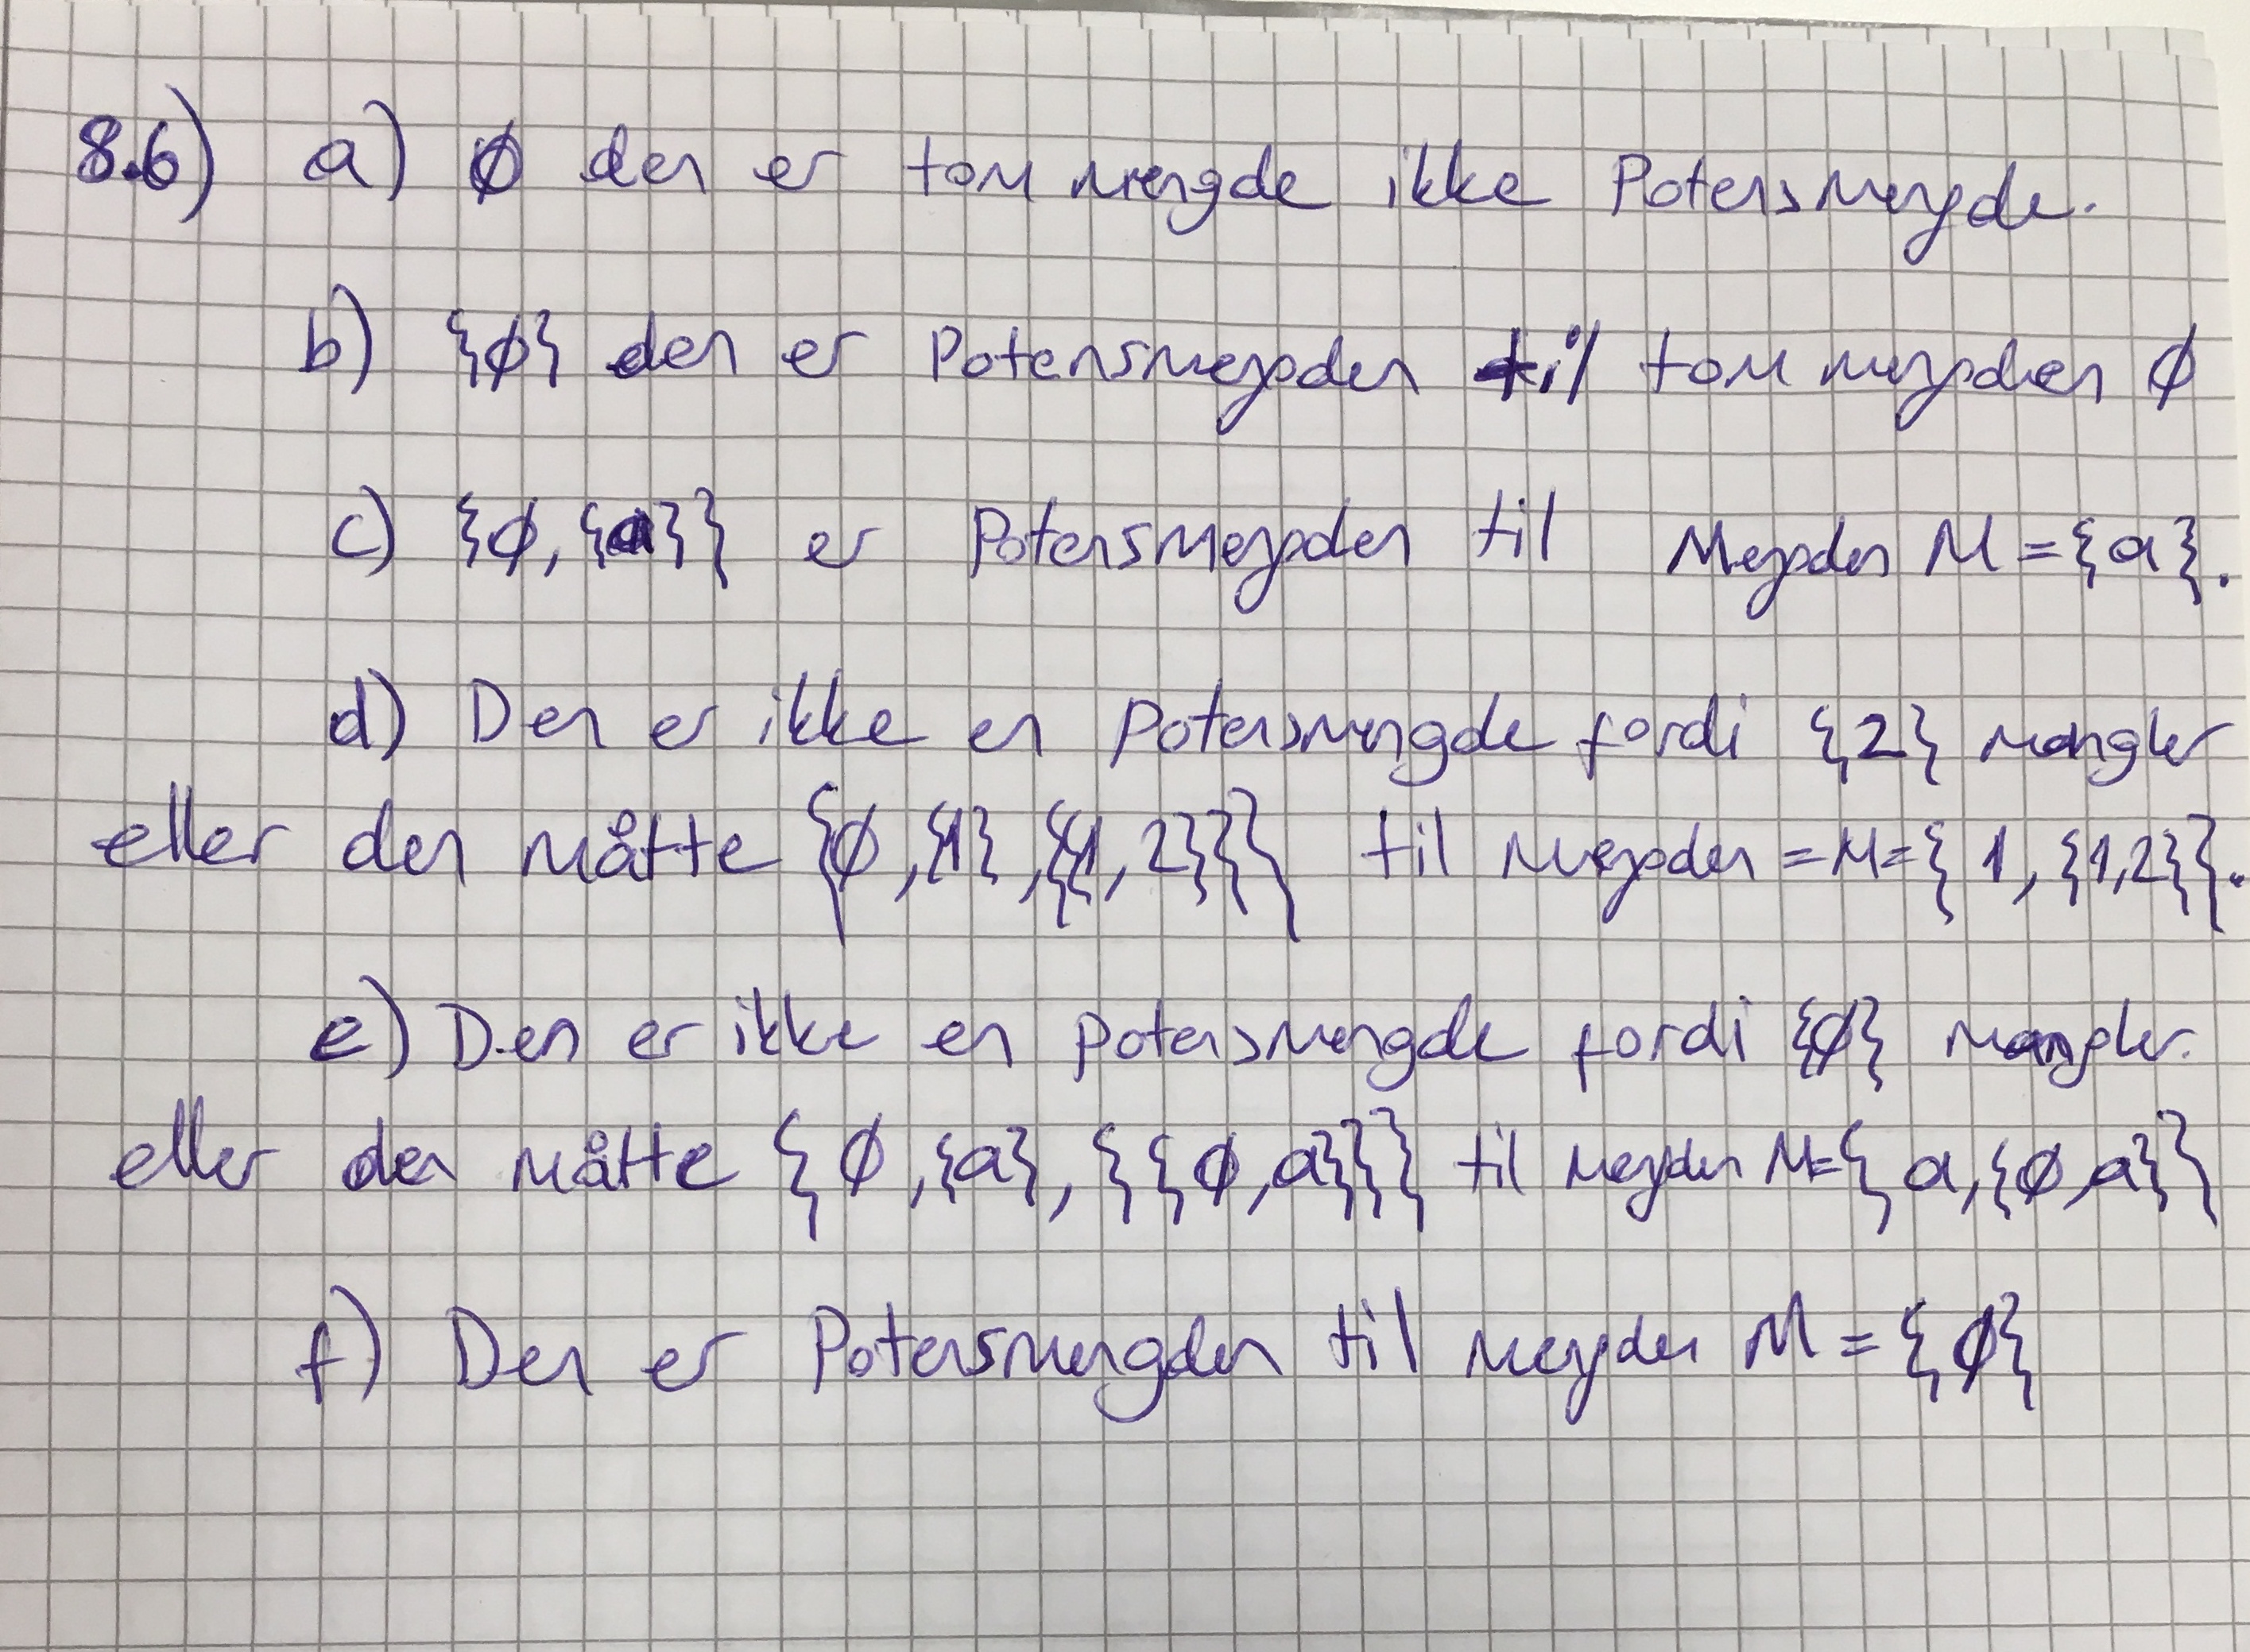 8.6) a) ∅ den er tom mengde ikke Potensmengde.
b) {∅} den er Potensmengden til tom mengden ∅
c) {∅, {a}} er Potensmengden til Mengden M = {a}.
d) Den er ikke en potensmengde fordi {2} mangler
eller den måtte {∅, {1}, {{1, 2}}} til mengden = M = { 1, {1,2}}.
e) Den er ikke en potensmengde fordi {∅} mangler.
eller den måtte { ∅, {a}, { {∅, a}}} til mengden M = { a, {∅, a}}
f) Den er Potensmengden til mengden M = {∅}